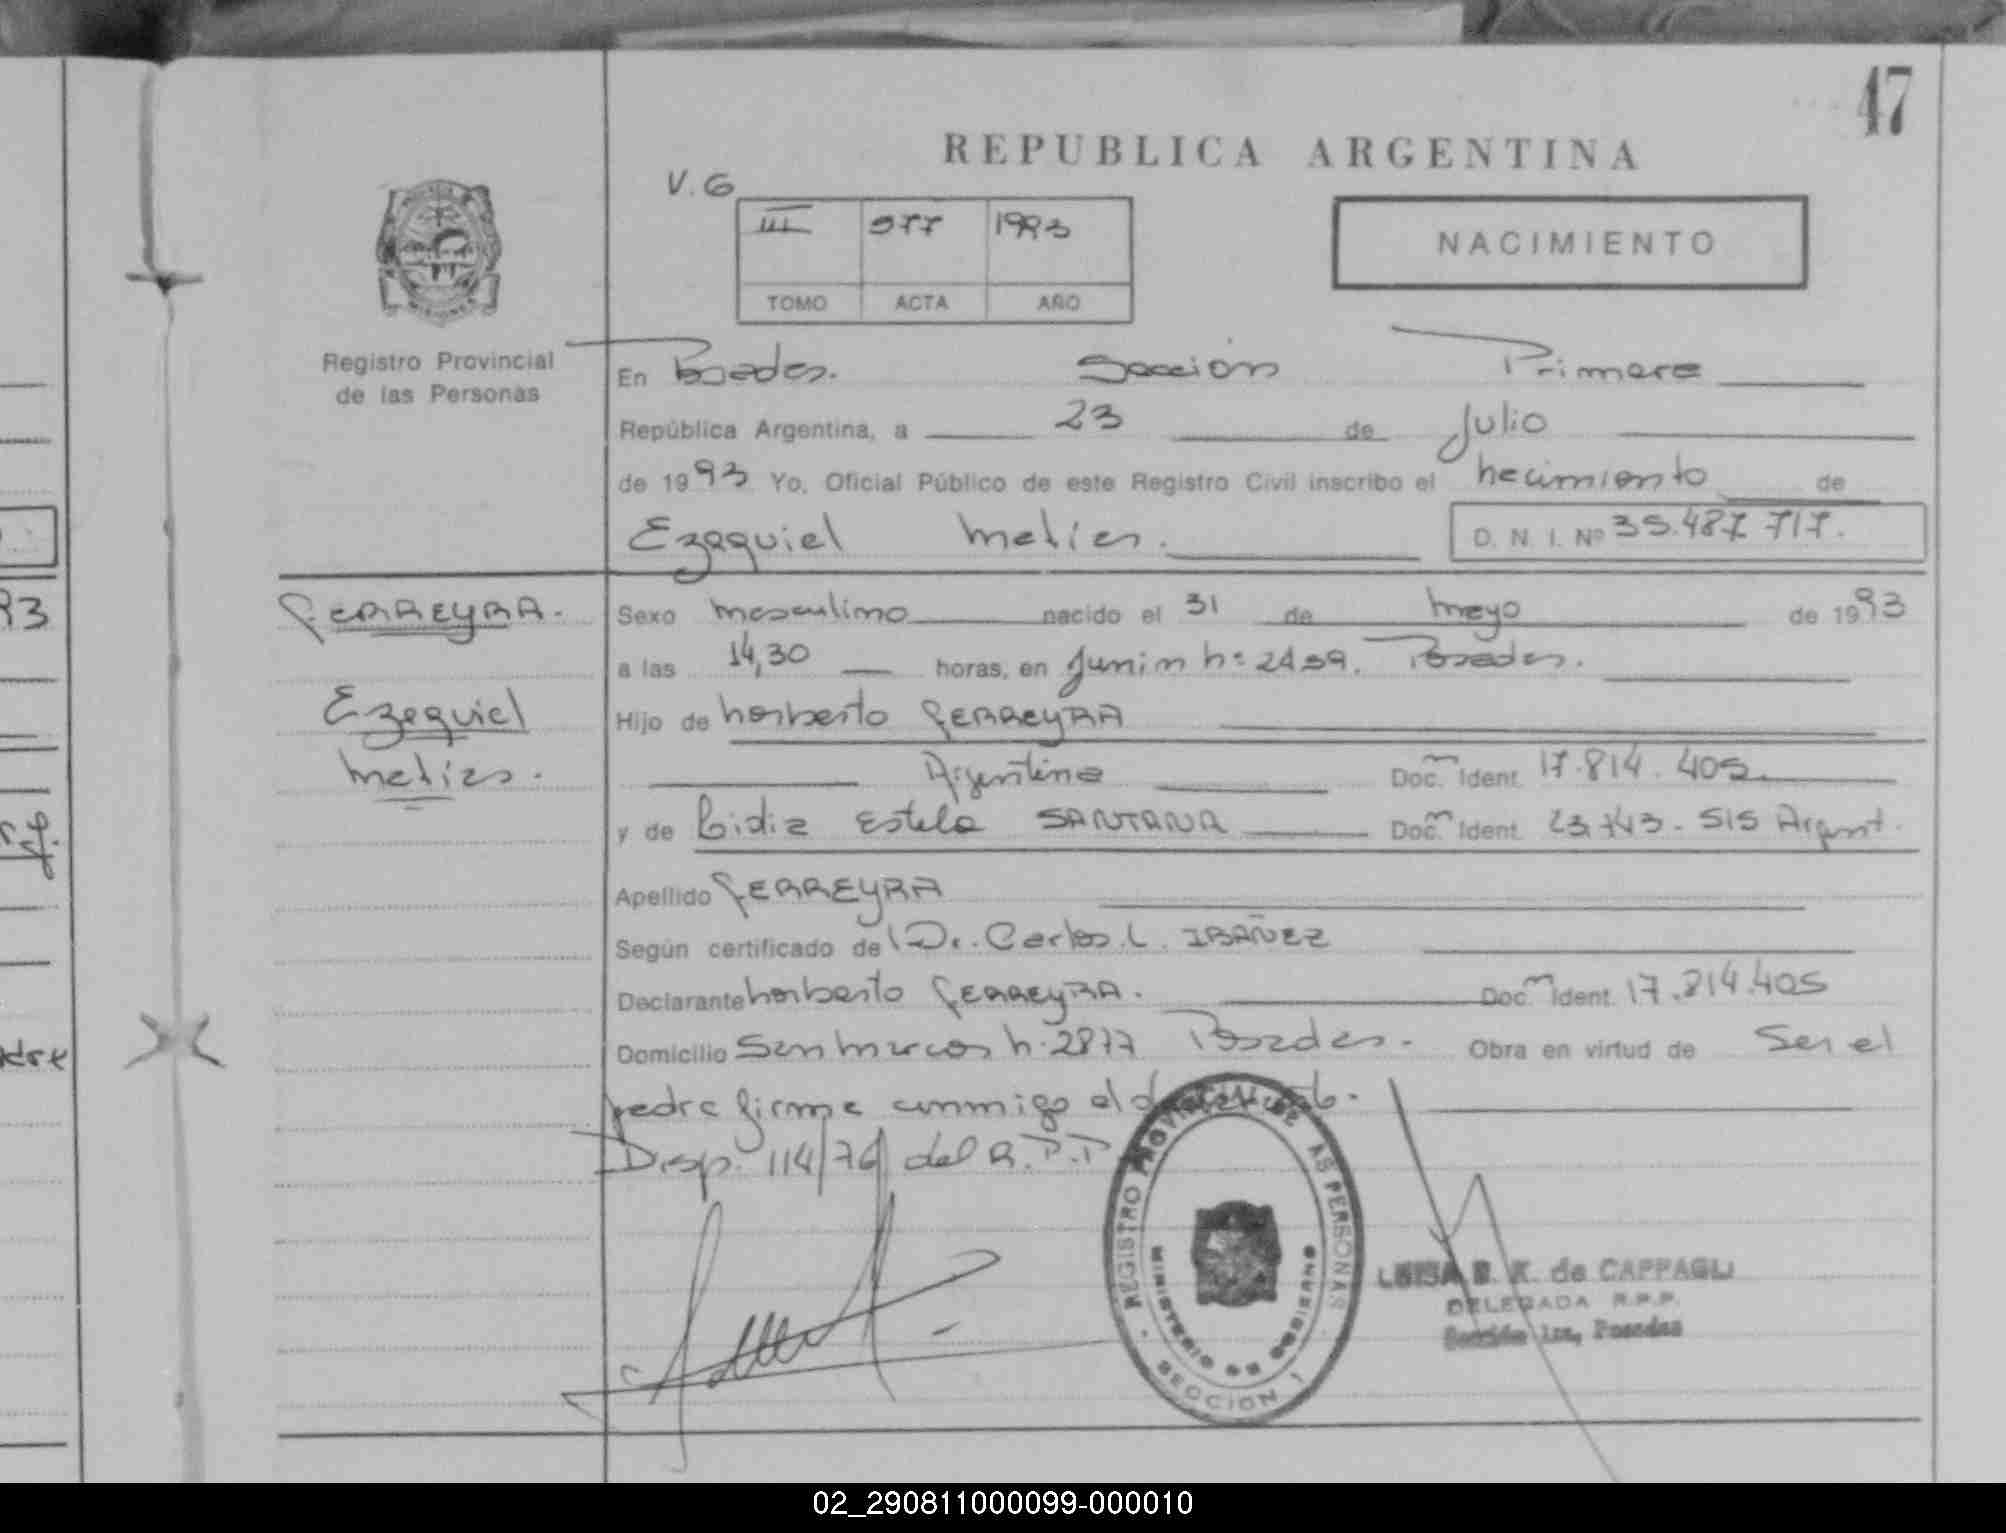 47
REPUBLICA ARGENTINA
V. G
III 977 1993
TOMO ACTA AÑO
NACIMIENTO
Registro Provincial
de las Personas
En Posadas. Sección Primera
República Argentina, a 23 de Julio
de 1993 Yo, Oficial Público de este Registro Civil inscribo el nacimiento de
Ezequiel Matías. D. N. I. Nº 35.487.717.
FERREYRA.
Ezequiel
Matías.
Sexo masculino nacido el 31 de mayo de 1993
a las 14,30 horas, en Junin nº 2439. Posadas.
Hijo de Norberto FERREYRA
Argentina Doc. Ident. 17.814.405
y de Lidia Estela SANTANA Doc. Ident. 23.143.515 Argent.
Apellido FERREYRA
Según certificado de Dr. Carlos L. IBAÑEZ
Declarante Norberto FERREYRA. Doc. Ident. 17.814.405
Domicilio San Marcos n. 2877 Posadas. Obra en virtud de Ser el
padre firma conmigo el
Disp. 114/76 del R.P.P
REGISTRO PROVINCIAL DE LAS PERSONAS
MINISTERIO DE GOBIERNO
SECCION 1
LUISA B. K. de CAPPAGLI
DELEGADA R.P.P.
Sección 1ra, Posadas
93
02_290811000099-000010